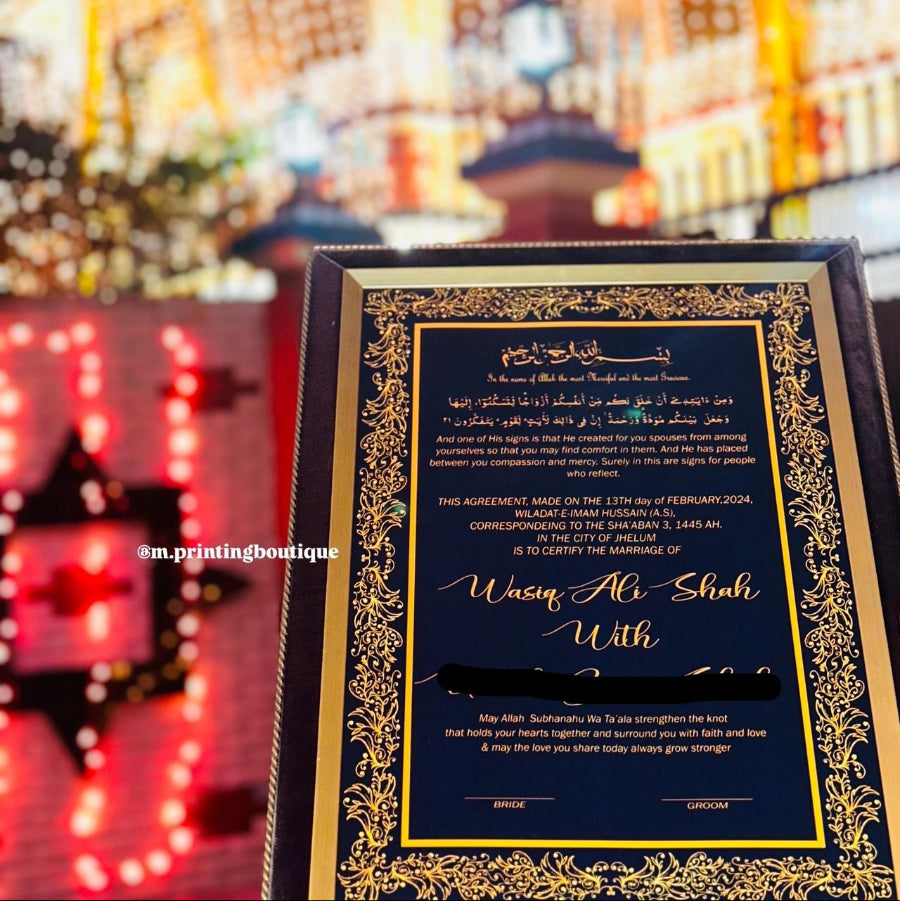 بسم الله الرحمن الرحيم
In the name of Allah the most Merciful and the most Gracious.
وَمِنْ ءَايَٰتِهِۦٓ أَنْ خَلَقَ لَكُم مِّنْ أَنفُسِكُمْ أَزْوَٰجًا لِّتَسْكُنُوٓا۟ إِلَيْهَا
وَجَعَلَ بَيْنَكُم مَّوَدَّةً وَرَحْمَةً ۚ إِنَّ فِى ذَٰلِكَ لَءَايَٰتٍ لِّقَوْمٍ يَتَفَكَّرُونَ ٢١
And one of His signs is that He created for you spouses from among
yourselves so that you may find comfort in them. And He has placed
between you compassion and mercy. Surely in this are signs for people
who reflect.
THIS AGREEMENT, MADE ON THE 13TH day of FEBRUARY,2024,
WILADAT-E-IMAM HUSSAIN (A.S),
CORRESPONDEING TO THE SHA'ABAN 3, 1445 AH.
IN THE CITY OF JHELUM
IS TO CERTIFY THE MARRIAGE OF
@m.printingboutique
Wasiq Ali Shah
With
May Allah Subhanahu Wa Ta'ala strengthen the knot
that holds your hearts together and surround you with faith and love
& may the love you share today always grow stronger
BRIDE GROOM